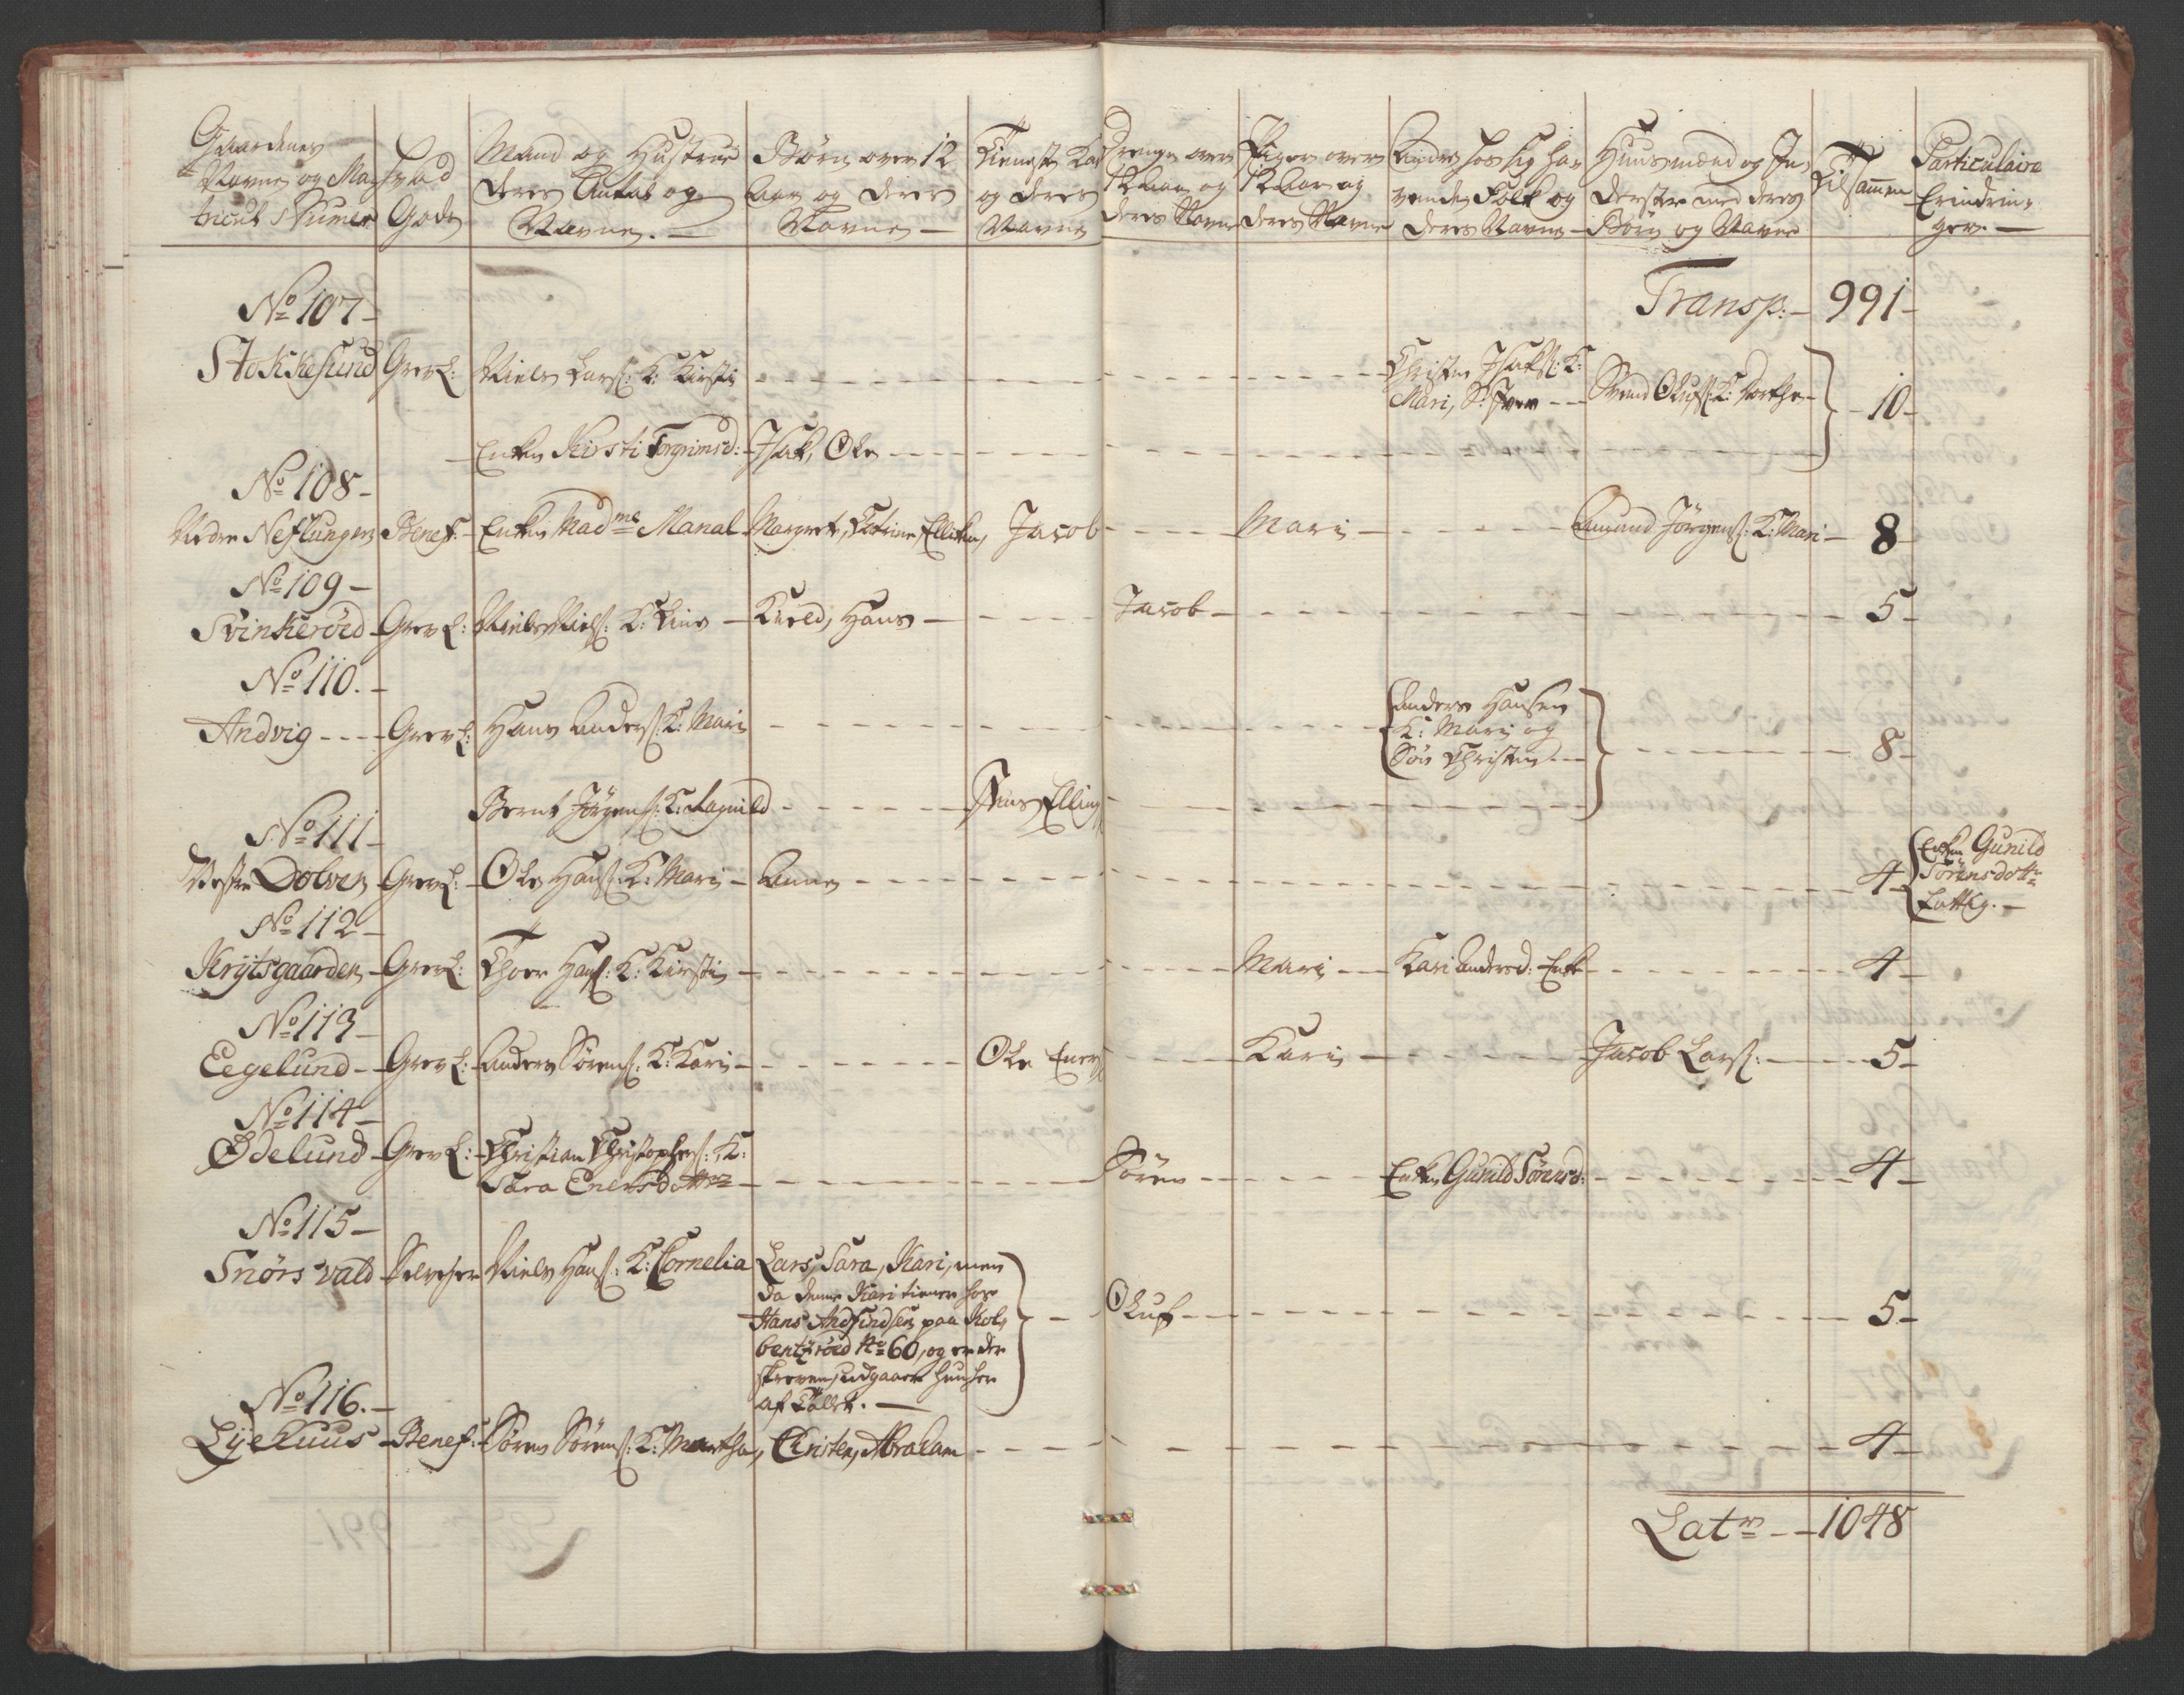 Gaardenes Navne og Matricul Numer
Hvad Gods
Mand og Hustrue deres Antal og Navne. —
Børn over 12 Aar og deres Navne —
Tienest Karle og deres Navne
Drenge over 12 Aar og deres Navne
Piger over 12 Aar og deres Navne
Andre hos sig havende Folk og deres Navne —
Huusmænd og Inderster med deres Børn og Navne
Tilsammen
Particulaire Erindringer. —
Transp: — 991 —
No 107 —
Stokkesund Grevl: Niels Lars: K: Kirsti
Christen Isaks: K:
Mari, S: Iver — — Svend Olufs: K: Dorthe — 10 —
— Enken Kirsti Torgrimsd: Isak, Ole
No 108 —
Nedre Neflungen Benef: — Enken Madme Manal Margret, Catrine, Elliken, Jacob Mari Amund Jörgens: K: Mari — 8
No 109 —
Svinkeröed Grevl: Niels Niels: K: Line — Kield, Hans — Jacob — 5 —
No 110. —
Andvig — Grevl: Hans Anders: K: Mari
Anders Hansen
K: Mari og
Sön Christen — 8 —
Bernt Jörgens: K: Lagnild Jens Elling
No 111 —
Vestre Dolven Grevl: — Ole Hans: K: Mari — Anne 4
Enken Gunild
Sörensdotter
Fattig. —
No 112 —
Krijtsgaarden — Grevl: Thore Hans: K: Kirsti — Mari Kari Andersd: Enke 4 —
No 113 —
Eegelund — Grevl: Anders Sörens: K: Kari — Ole Eners Kari Jacob Lars: 5 —
No 114 —
Ødelund — Grevl: — Christian Christophers: K:
Sara Enersdotter — Sören Enken Gunild Sörensd: 4 —
No 115 —
Snörs vald Selveier Niels Hans: K: Cornelia Lars, Sara, Kari, men
da denne Kari tiener hos
Hans Andfindsen paa Kol-
bentzröed No 60, og er der
skreven, udgaaer hun her
af Tallet. —
Oluf 5 —
No 116. —
Lÿehuus — Benef: Sören Sörens: K: Martha, Christen, Abraham 4 —
Latr — 1048